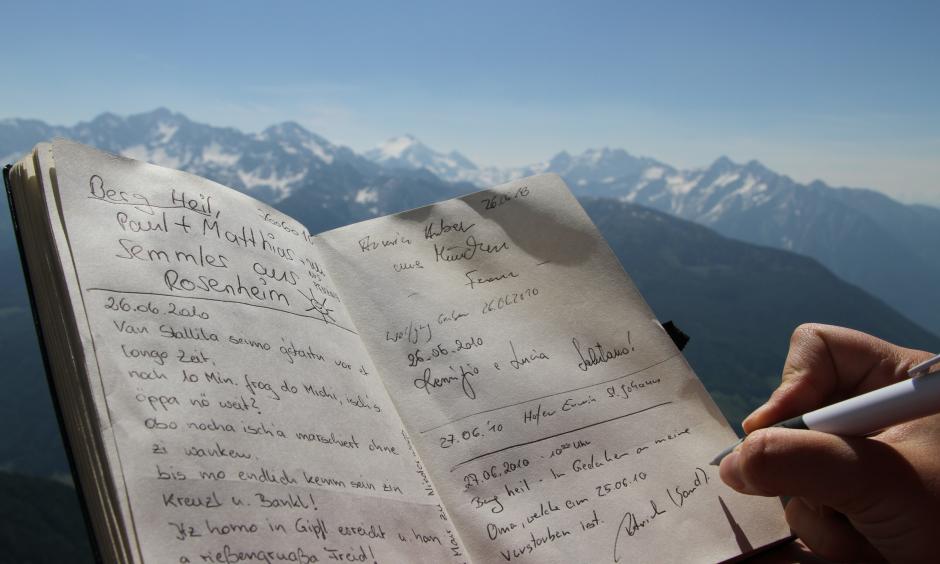 Berg Heil,
Paul + Matthias
Semmler aus
Rosenheim
26.06.2010
Van Stallila seimo gstartn vor
longo Zeit,
noch 10 Min. frog do Michi, isch's
öppa nö weit?
Obo nocha isch'a marschiert ohne
zi wanken.
bis mo endlich kemm sein zin
Kreuzl u. Bankl!
Itz homo in Gipfl erreicht u. han
a rießengruaßa Freid!
26.06.10
Huber
aus München
26.06.2010
26.06.2010
Remigio e Lucia Salutano!
27.06.'10 Hofer Erwin St. Johann
27.06.2010 - 10⁰⁰ Uhr
Berg heil - In Gedenken an meine
Oma, welche am 25.06.10
verstorben ist. Patrick (Sand).